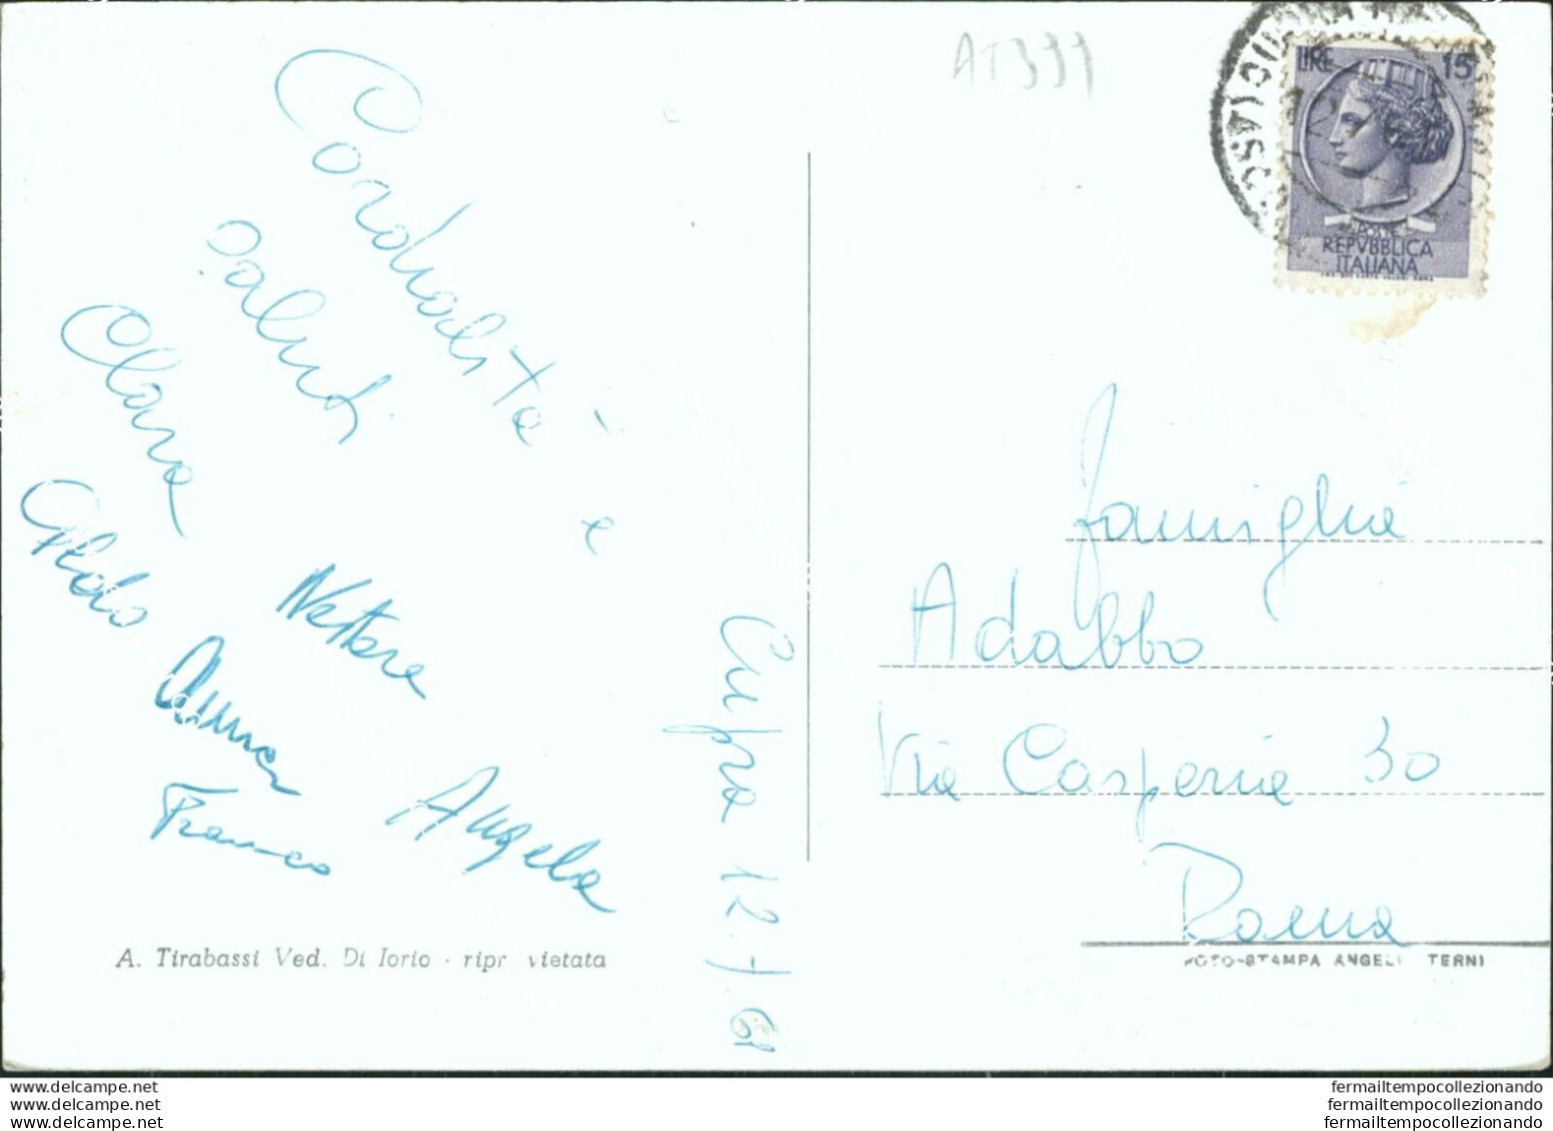 AT399
LIRE 15
POSTE
REPVBBLICA
ITALIANA
Cordialità e
saluti
Clara
Aldo
Nettore
Anna
Franco
Angela
Cupra 12.7.61
famiglia
Adabbo
Via Casperia 30
Roma
A. Tirabassi Ved. Di Iorio - ripr vietata
FOTO-STAMPA ANGELI TERNI
www.delcampe.net
www.delcampe.net
www.delcampe.net
fermailtempocollezionando
fermailtempocollezionando
fermailtempocollezionando